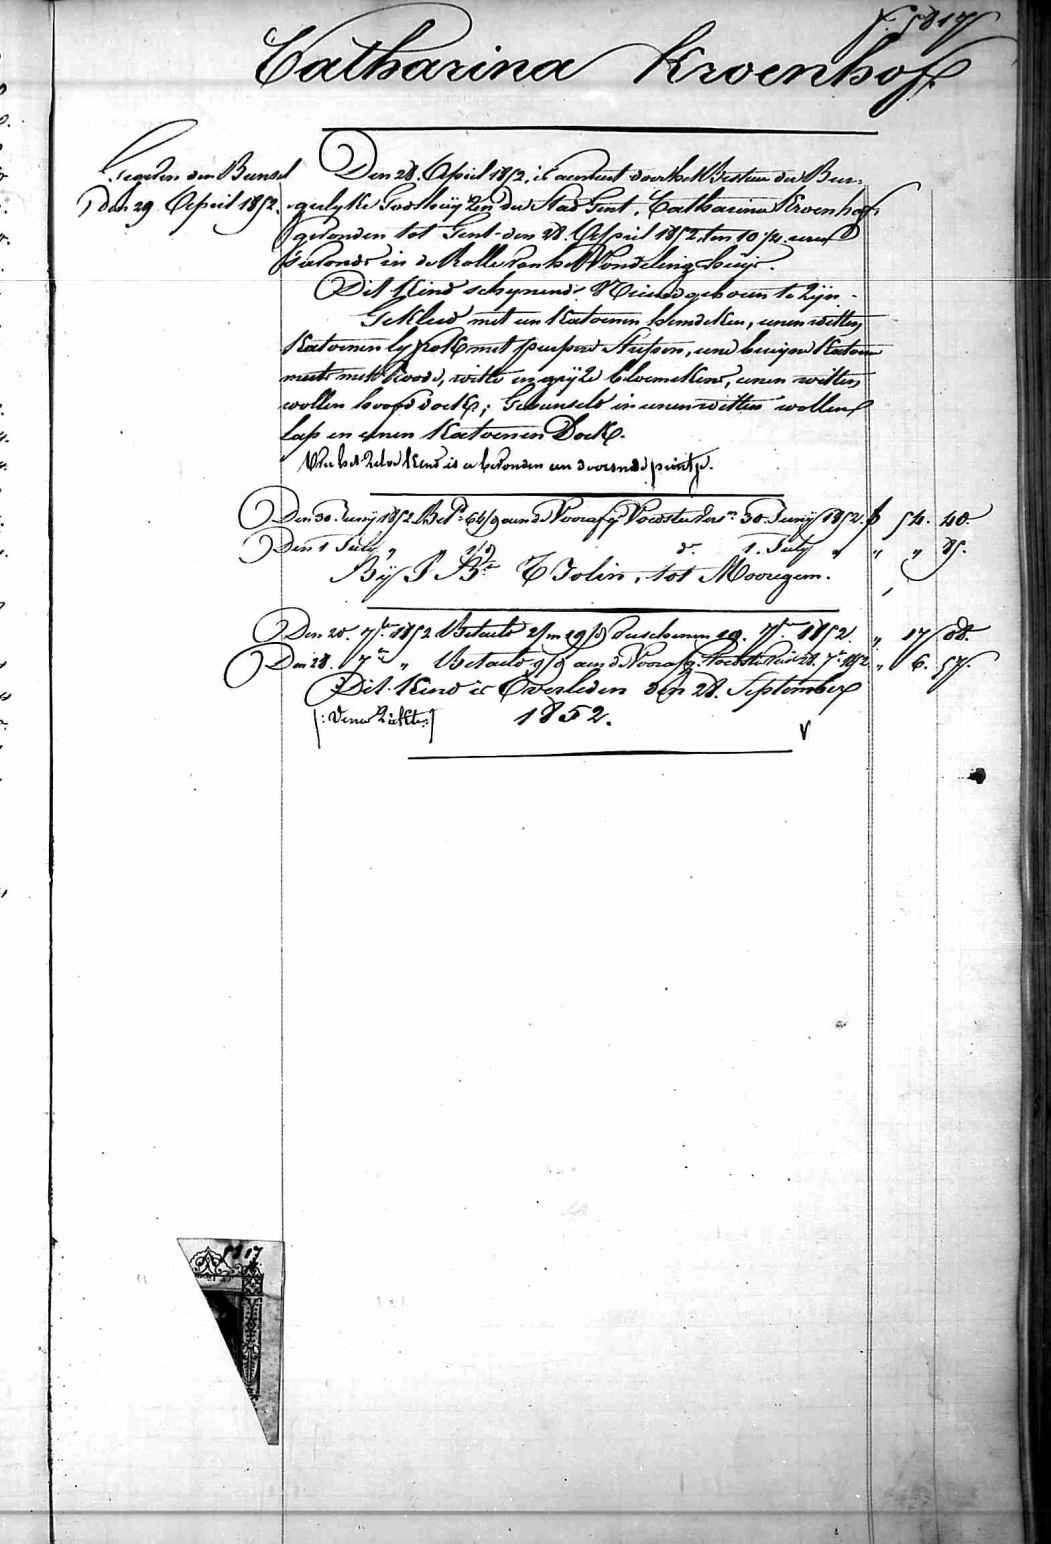 5817
Catharina Kroenhof
den Bundel
den 29 April 1852.
Den 28. April 1852, is aenveert door het Bestier der Bur-
gerlyke Godshuyzen der Stad Gent, Catharina Kroenhof
gevonden tot Gent den 28. April 1852, ten 10 1/4 uren
s'avonds in de Rolle van het Vondelinghuys.
Dit Kind schynende Nieuwgeboren te Zyn.
Gekleed met een Katoenen hemdeken, eenen witten
Katoenen met purpere streepen, eene bruyne Katoene
muts met Roode, witte en gryze bloemekens, eenen witten
wollen hoofddoek; Gebunseld in eenen witten wollen
lap en eenen Katoenen Doek.
By het Zelve Kind is er bevonden een doorsneden printje.
Den 30. Juny 1852. Bet. aen de Voorafg. Voedster 30. Juny 1852. f 54. 40.
Den 1 July " d. 1. July " " " 85.
By P. Bte. Colin, tot Mooregem.
Den 20. 7bre 1852 Betaeld verschenen 19. 7bre 1852. " 17 08.
Den 28. 7bre " Betaeld aen de Voorafg. Voedster 28. 7bre 1852 " 6. 57.
Dit Kind is Overleden den 28. September
1852.
5817